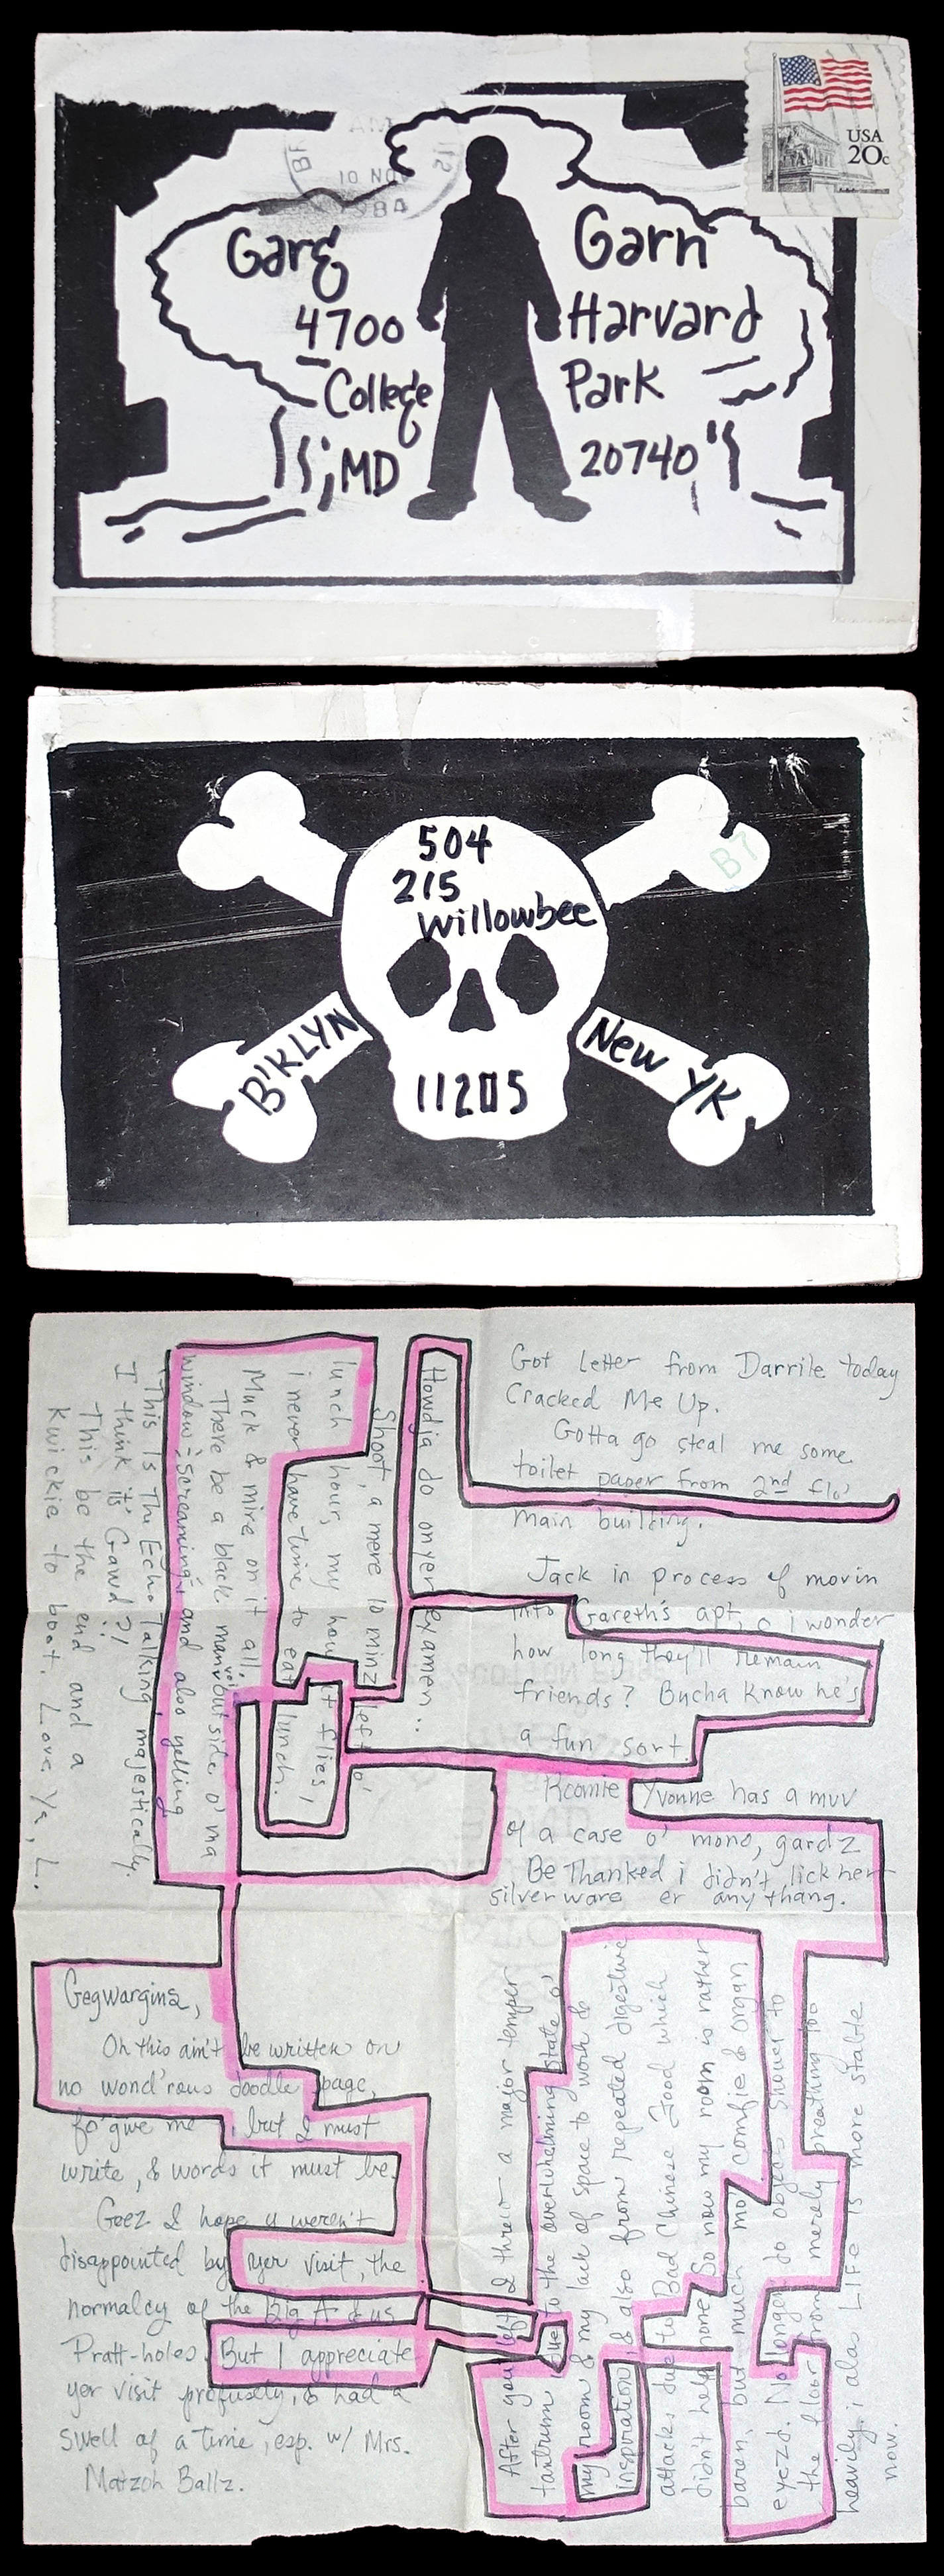 USA
20c
JUN 01
1984
Garg Garn
4700 Harvard
College Park
MD 20740
504
215
Willowbee
B7
B'KLYN New YK
11205
Gegwargins,
Oh this ain't be written on
no wond'rous doodle page,
fo'give me, but I must
write, & words it must be.
Geez I hope u weren't
disappointed by yer visit, the
normalcy of the Big A & us
Pratt-holes. But I appreciate
yer visit profusely, & had a
swell of a time, esp. w/ Mrs.
Matzoh Ballz.
After you left I threw a major temper
tantrum due to the overwhelming state o'
my room & my lack of space to work &
inspiration, & also from repeated digestive
attacks due to Bad Chinese Food which
didn't help more. So now my room is rather
baren, but much mo' comfie & organ
eyezd. No longer do objects shower to
the floor from merely breathing too
heavily. i alas LIFE is more stable
now.
Got letter from Darrile today
Cracked Me Up.
Gotta go steal me some
toilet paper from 2nd flo'
main building.
Jack in process of movin
into Gareth's apt, o i wonder
how long they'll remain
friends? Bucha know he's
a fun sort.
Roomie Yvonne has a muv
of a case o' mono, gardz
Be Thanked i didn't lick her
silverware er any thang.
Howdja do on yer eyamen..
Shoot, a mere 10 minz left o'
lunch hour, my how it flies,
i never have time to eat lunch.
Muck & mire on it all.
There be a black man outside o' ma
window screaming & and also yelling
This Is The Echo Talking, majestically.
I think its Gawd?!
This be the end and a
kwickie to boot. Love Ya, L.